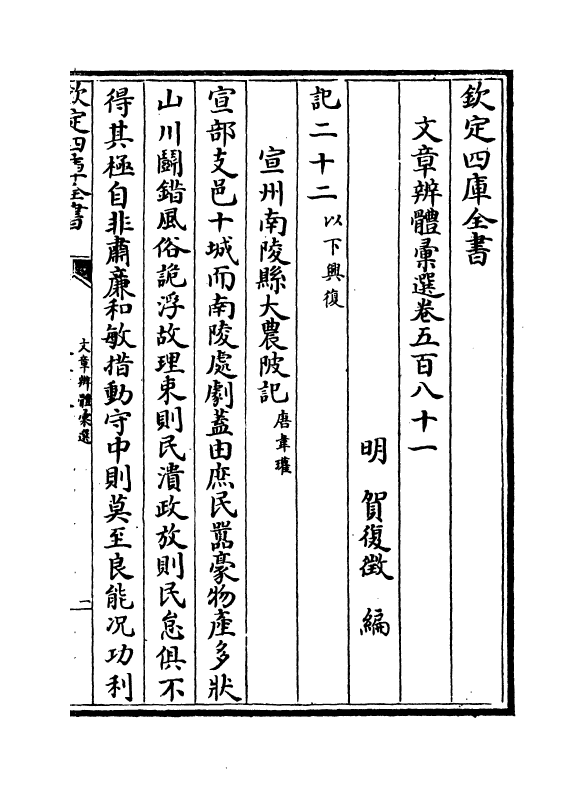 欽定四庫全書
文章辨體彚選卷五百八十一
明 賀復徵 編
記二十二以下興復
宣州南陵縣大農陂記唐韋瓘
宣部支邑十城而南陵處劇蓋由庶民嚚豪物產多狀
山川鬭錯風俗詭浮故理束則民潰政放則民怠俱不
得其極自非肅亷和敏措動守中則莫至良能况功利
欽定四庫全書
文章辨體彚選
一